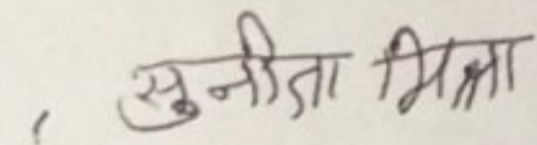 सुनीता मिश्रा